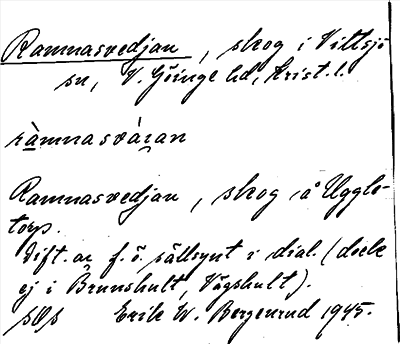 Ramnasvedjan, skog i Vittsjö
sn, V. Göinge hd, Krist. l.
ràmnasvá̱ɪ̯an
Ramnasvedjan, skog å Uggle-
torp.
Dift. är f. ö. sällsynt i dial. (dock
ej i Brunshult, Vägshult).
SOS Erik W. Bergenrud 1945.